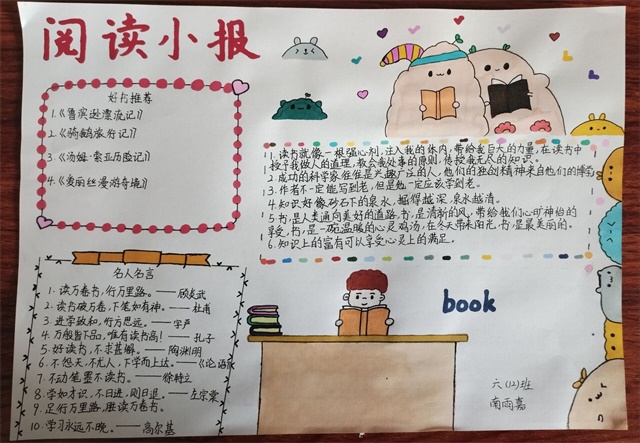 阅读小报
好书推荐
1.《鲁滨逊漂流记》
2.《骑鹅旅行记》
3.《汤姆·索亚历险记》
4.《爱丽丝漫游奇境》
1. 读书就像一根强心剂,注入我的体内,带给我巨大的力量,在读书中
授予我做人的道理,教会我处事的原则,传授我无尽的知识。
2. 成功的科学家往往是兴趣广泛的人,他们的独创精神来自他们的博学
3. 作者不一定能写到老,但是他一定应该学到老。
4. 知识好像砂石下的泉水,掘得越深,泉水越清。
5. 书,是人类通向美好的道路,书,是清新的风,带给我们心旷神怡的
享受,书,是一碗温暖的心灵鸡汤,在冬天带来阳光,书,是最美丽的。
6. 知识上的富有可以享受心灵上的满足。
名人名言
1. 读万卷书,行万里路。——顾炎武
2. 读书破万卷,下笔如有神。——杜甫
3. 进学致和,行方思远。——字严
4. 万般皆下品,唯有读书高!——孔子
5. 好读书,不求甚解。——陶渊明
6. 不怨天,不尤人,下学而上达。——《论语》
7. 不动笔墨不读书。——徐特立
8. 学如才识,不日进,则日退。——左宗棠
9. 足行万里路,胜读万卷书。
10. 学习永远不晚。——高尔基
book
六(12)班
南雨嘉